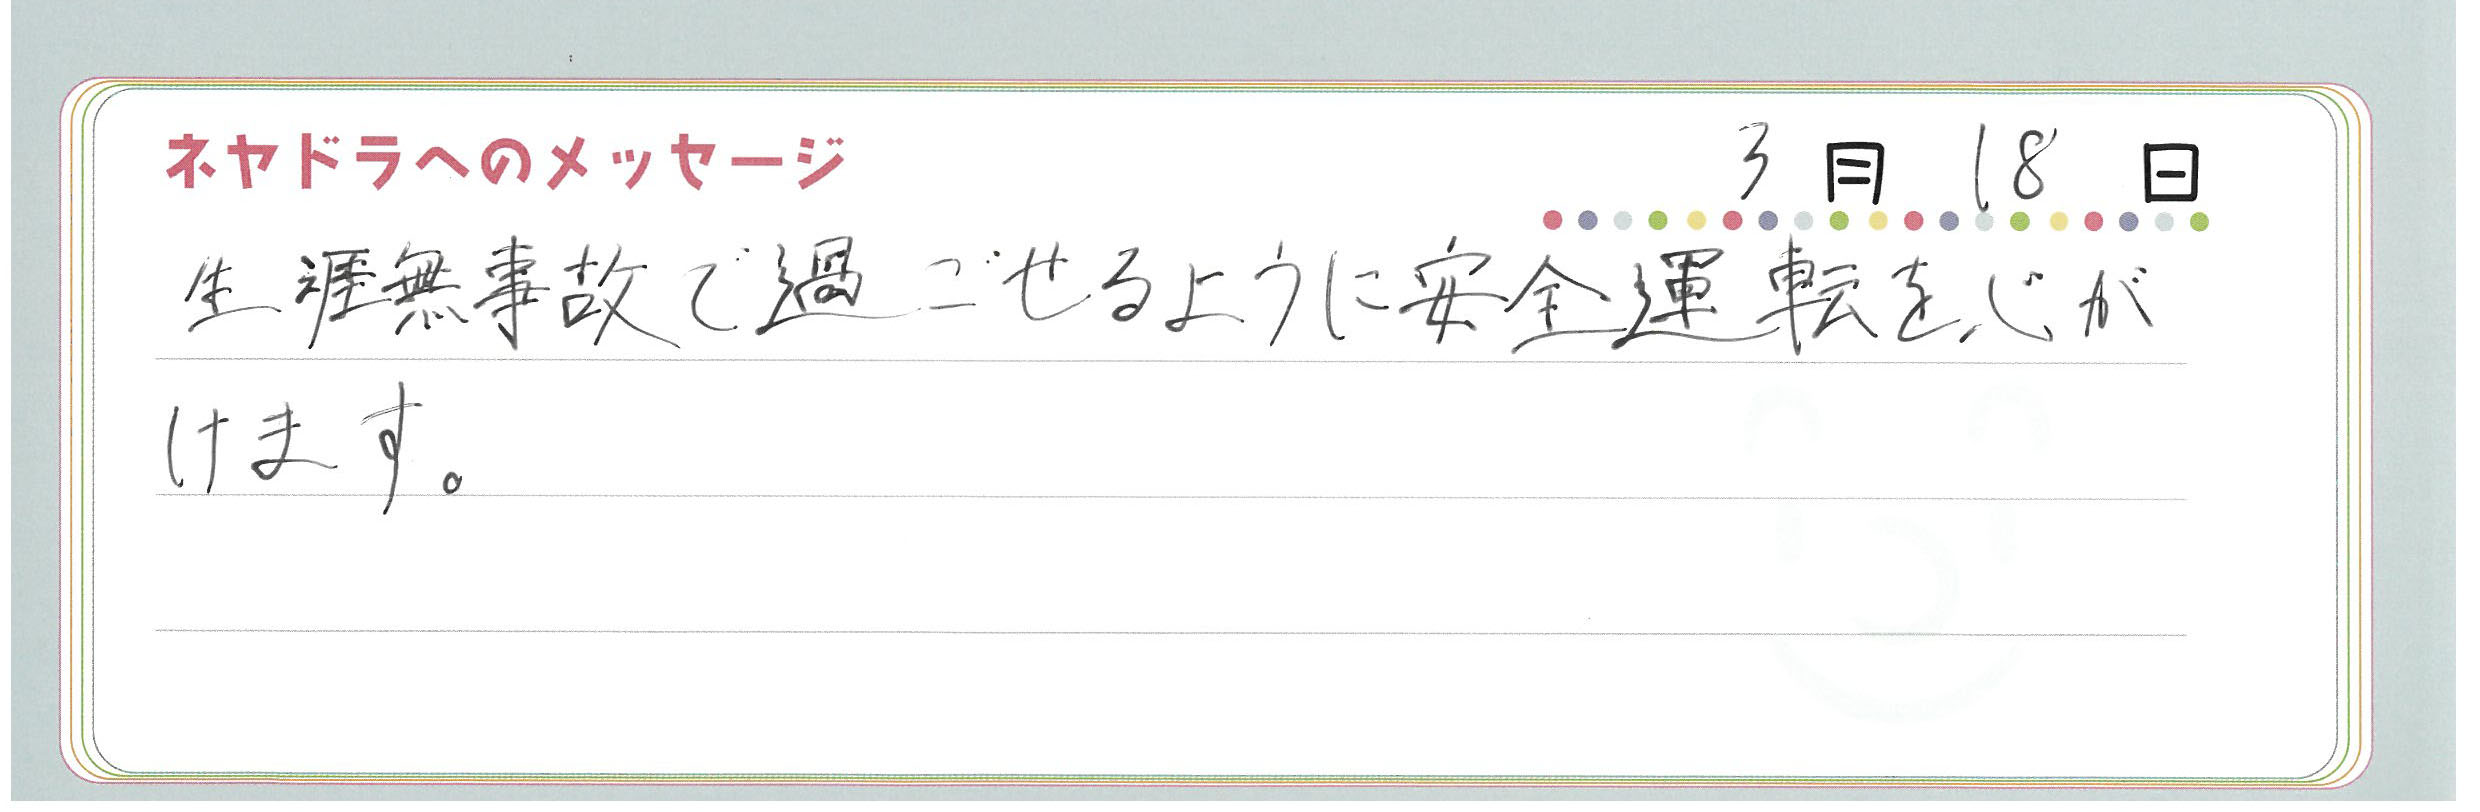 ネヤドラへのメッセージ 3月18日
生涯無事故で過ごせるように安全運転を心が
けます。